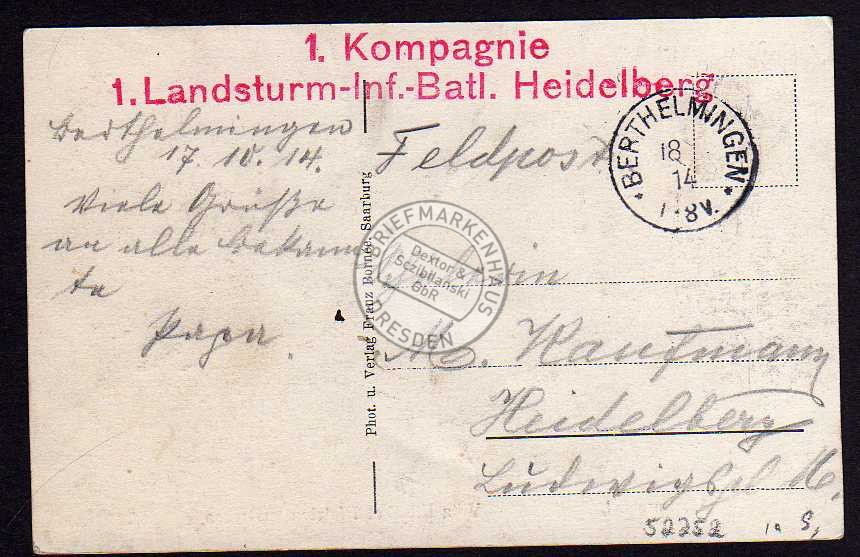 1. Kompagnie
1. Landsturm-Inf.-Batl. Heidelberg
Berthelmingen
17. 10. 14.
Viele Grüße
an alle Bekann
te
Papa
Phot. u. Verlag Franz Bornée, Saarburg
Feldpost
BERTHELMINGEN
18
14
7-8V.
BRIEFMARKENHAUS
Dexton &
Sczibilanski
GbR
DRESDEN
M. Kaufmann
Heidelberg
52252